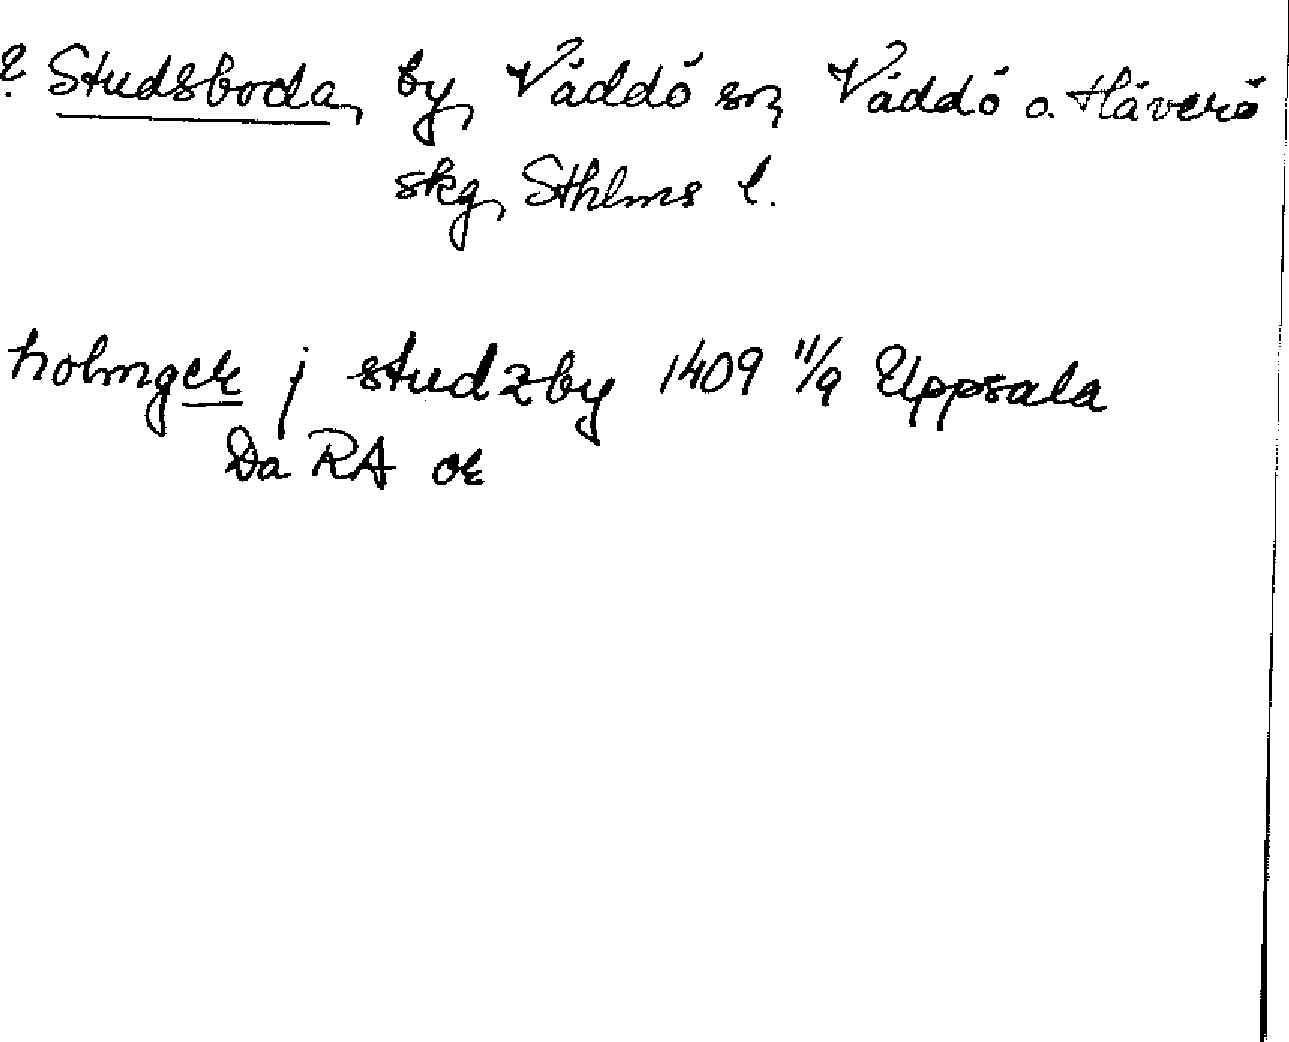 ? Studsboda, by, Väddö sn, Väddö o. Häverö
skg, Sthlms l.
holmger j studzby 1409 11/9 Uppsala
Da RA or